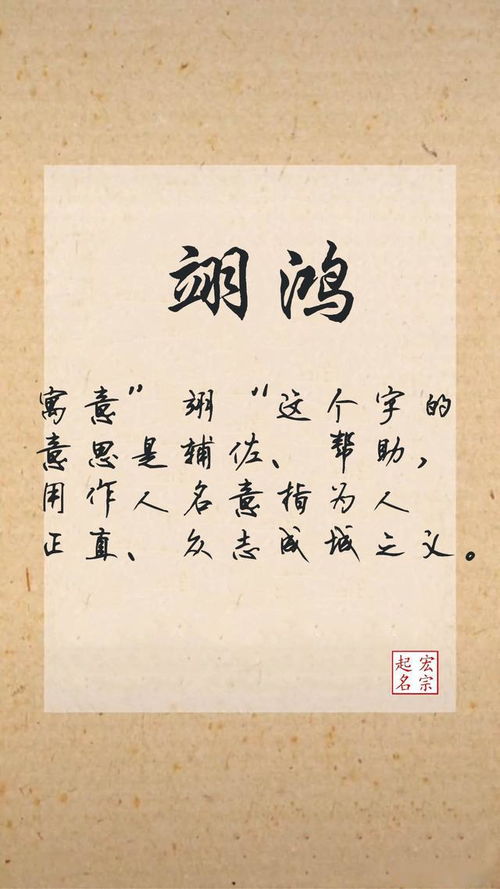 翊鸿
寓意"翊"这个字的
意思是辅佐、帮助,
用作人名意指为人
正直、众志成城之义。
宏宗
起名